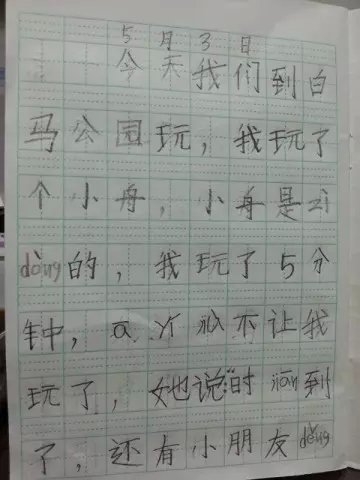 5月3日
今天我们到白
马公园玩，我玩了
个小舟，小舟是zì
dòng的，我玩了5分
钟，ā yí jiù不让我
玩了，她说：“时jiān到
了，还有小朋友děng